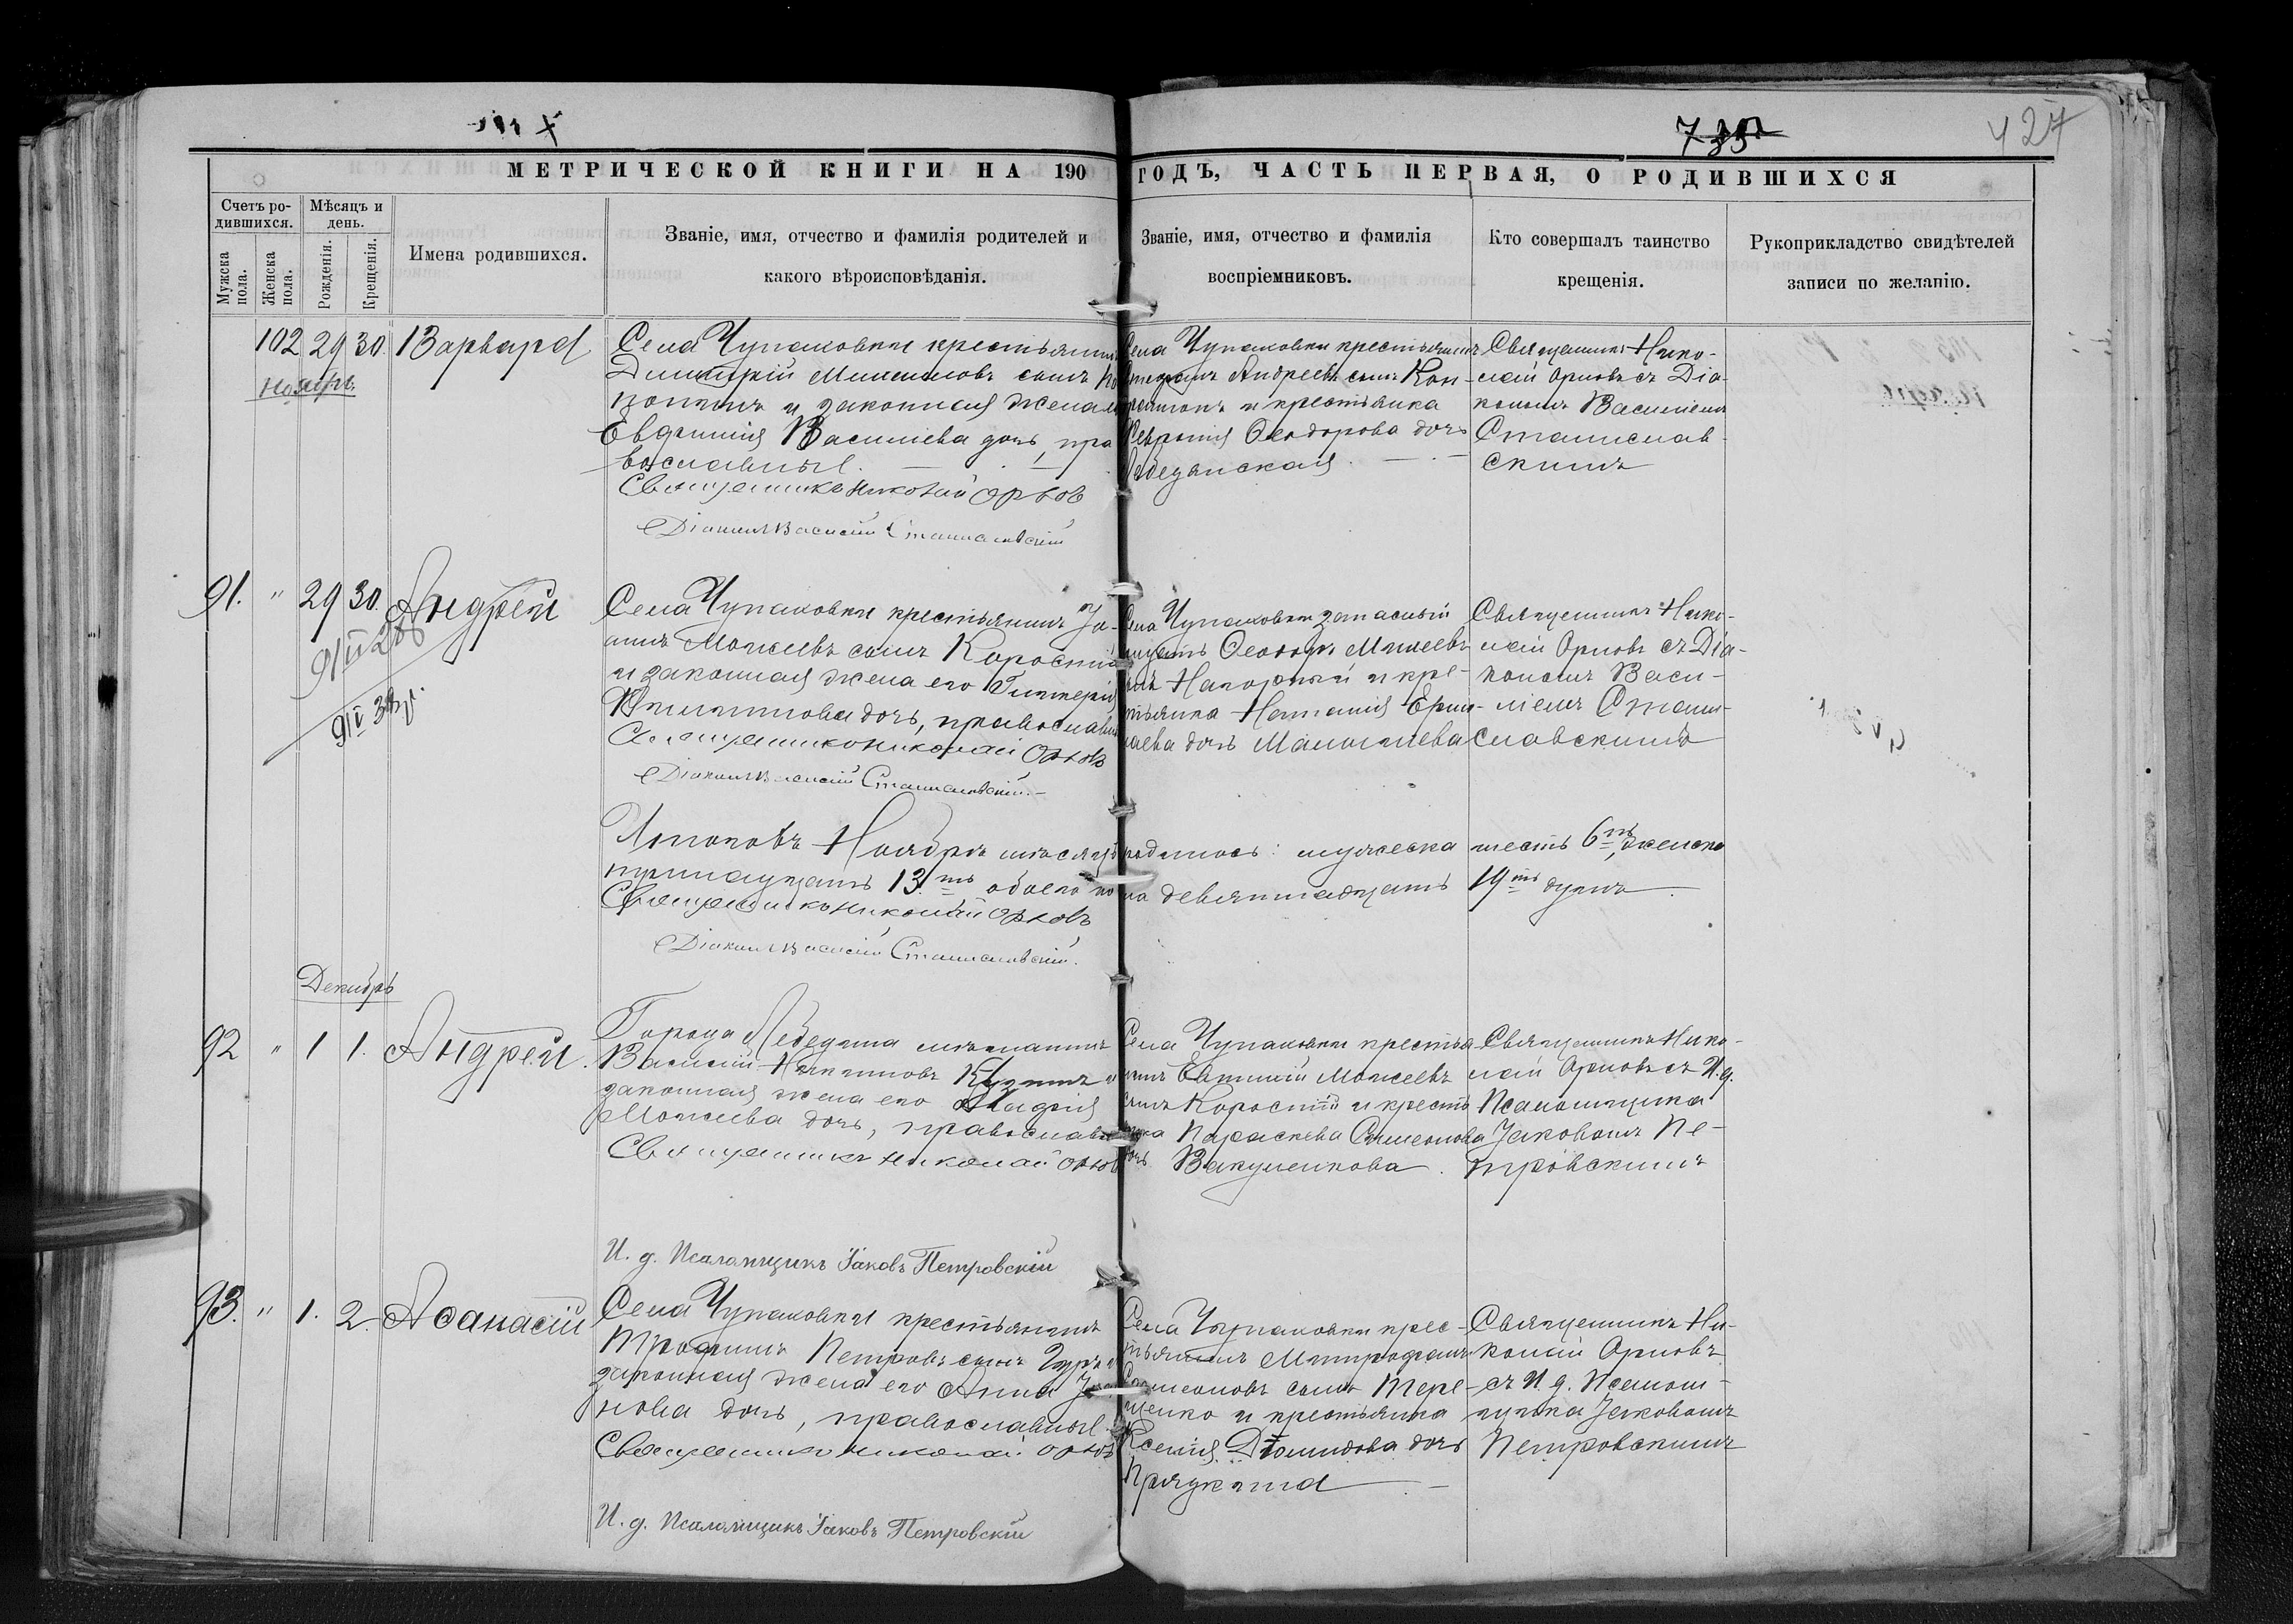 427
МЕТРИЧЕСКОЙ КНИГИ НА 190
ГОДЪ, ЧАСТЬ ПЕРВАЯ, О РОДИВШИХСЯ
Счетъ ро-
дившихся.
Мужска
пола.
Женска
пола.
Мѣсяцъ и
день.
Рожденія.
Крещенія.
Имена родившихся.
Званіе, имя, отчество и фамилія родителей и
какого вѣроисповѣданія.
Званіе, имя, отчество и фамилія
воспріемниковъ.
Кто совершалъ таинство
крещенія.
Рукоприкладство свидѣтелей
записи по желанію.
102 29 30. Варвара
ноябрь
Села Чупаховки крестьянинъ
Димитрій сынъ
и законная жена
Евфимія Василіева дочь, пра
вославные.
Священникъ Николай Орловъ
Діаконъ Василій Станиславскій
Села Чупаховки крестьянинъ
Андреевъ сынъ
и крестьянка
Феодорова дочь
Лебединская
Священникъ Нико-
лай Орловъ съ Діа-
кономъ Василіемъ
Станислав-
скимъ
91. " 29 30. Андрей
Села Чупаховки крестьянинъ Іо-
аннъ Моисеевъ сынъ Коростій
и законная жена его Гликерія
Филиппова дочь, православн
Священникъ Николай Орловъ
Діаконъ Василій Станиславскій.-
Села Чупаховки запасный
Феодоръ
Нагорный и кре-
стьянка Наталія Ермо-
лаева дочь
Священникъ Нико-
лай Орловъ съ Діа-
кономъ Васи-
ліемъ Стани-
славскимъ
Итого въ Ноябрѣ мѣсяцѣ родилось: мужеска шесть 6ть, женска
тринадцать 13.ть обоего пола девятнадцать 19ть душъ.
Священникъ Николай Орловъ
Діаконъ Василій Станиславскій.
Декабрь
92 " 1 1. Андрей.
Города Лебедина мѣщанинъ
Василій Никитинъ и
законная жена его Марія
Моисеева дочь, православн
Священникъ Николай Орловъ
И. д. Псаломщикъ Іаковъ Петровскій
Села Чупаховки крестья-
нинъ Евфимій Моисеевъ
сынъ Коростій и кресть
янка Параскева Симеонова
дочь Вакуленкова.
Священникъ Нико-
лай Орловъ съ И. д.
Псаломщика
Іаковомъ Пе-
тровскимъ
93. " 1. 2. Аѳанасій
Села Чупаховки крестьянинъ
Трофимъ Петровъ сынъ
законная жена его Анна
нова дочь, православные.
Священникъ Николай Орловъ
И. д. Псаломщикъ Іаковъ Петровскій
Села Чупаховки крес-
тьянинъ Митрофанъ
Симеоновъ сынъ Тере-
щенко и крестьянка
Ксенія Діомидова дочь
Священникъ Ни-
колай Орловъ
съ И. д. Псалом-
щика Іаковомъ
Петровскимъ